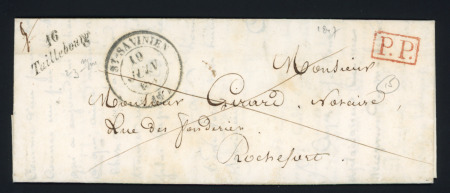 16
Taillebourg
ST-SAVINIEN
10
P.P.
Monsieur
Monsieur Girard, Notaire
Rue des fonderies
Rochefort.